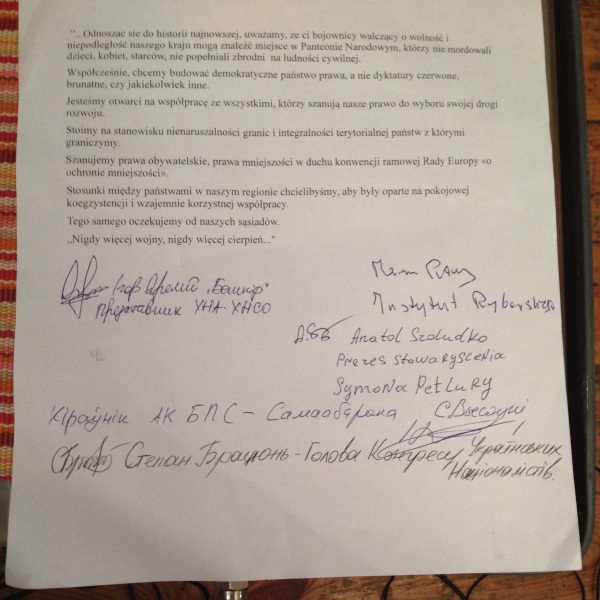 "...Odnosząc się do historii najnowszej, uważamy, ze ci bojownicy walczący o wolność i
niepodległość naszego kraju mogą znaleźć miejsce w Panteonie Narodowym, którzy nie mordowali
dzieci, kobiet, starców, nie popełniali zbrodni na ludności cywilnej.
Współcześnie, chcemy budować demokratyczne państwo prawa, a nie dyktatury czerwone,
brunatne, czy jakiekolwiek inne.
Jesteśmy otwarci na współpracę ze wszystkimi, którzy szanują nasze prawo do wyboru swojej drogi
rozwoju.
Stoimy na stanowisku nienaruszalności granic i integralności terytorialnej państw z którymi
graniczymy.
Szanujemy prawa obywatelskie, prawa mniejszości w duchu konwencji ramowej Rady Europy «o
ochronie mniejszości».
Stosunki między państwami w naszym regionie chcielibyśmy, aby były oparte na pokojowej
koegzystencji i wzajemnie korzystnej współpracy.
Tego samego oczekujemy od naszych sąsiadów.
„Nigdy więcej wojny, nigdy więcej cierpień..."
Ігор
Представник УНА-УНСО
Instytut Rybarskiego
Anatol Szołudko
Prezes Stowarzyszenia
Symona Petlury
Кіраўнік АК БПС - Самаабарона
Степан Брацюнь - Голова Конгресу Українських
Націоналістів.